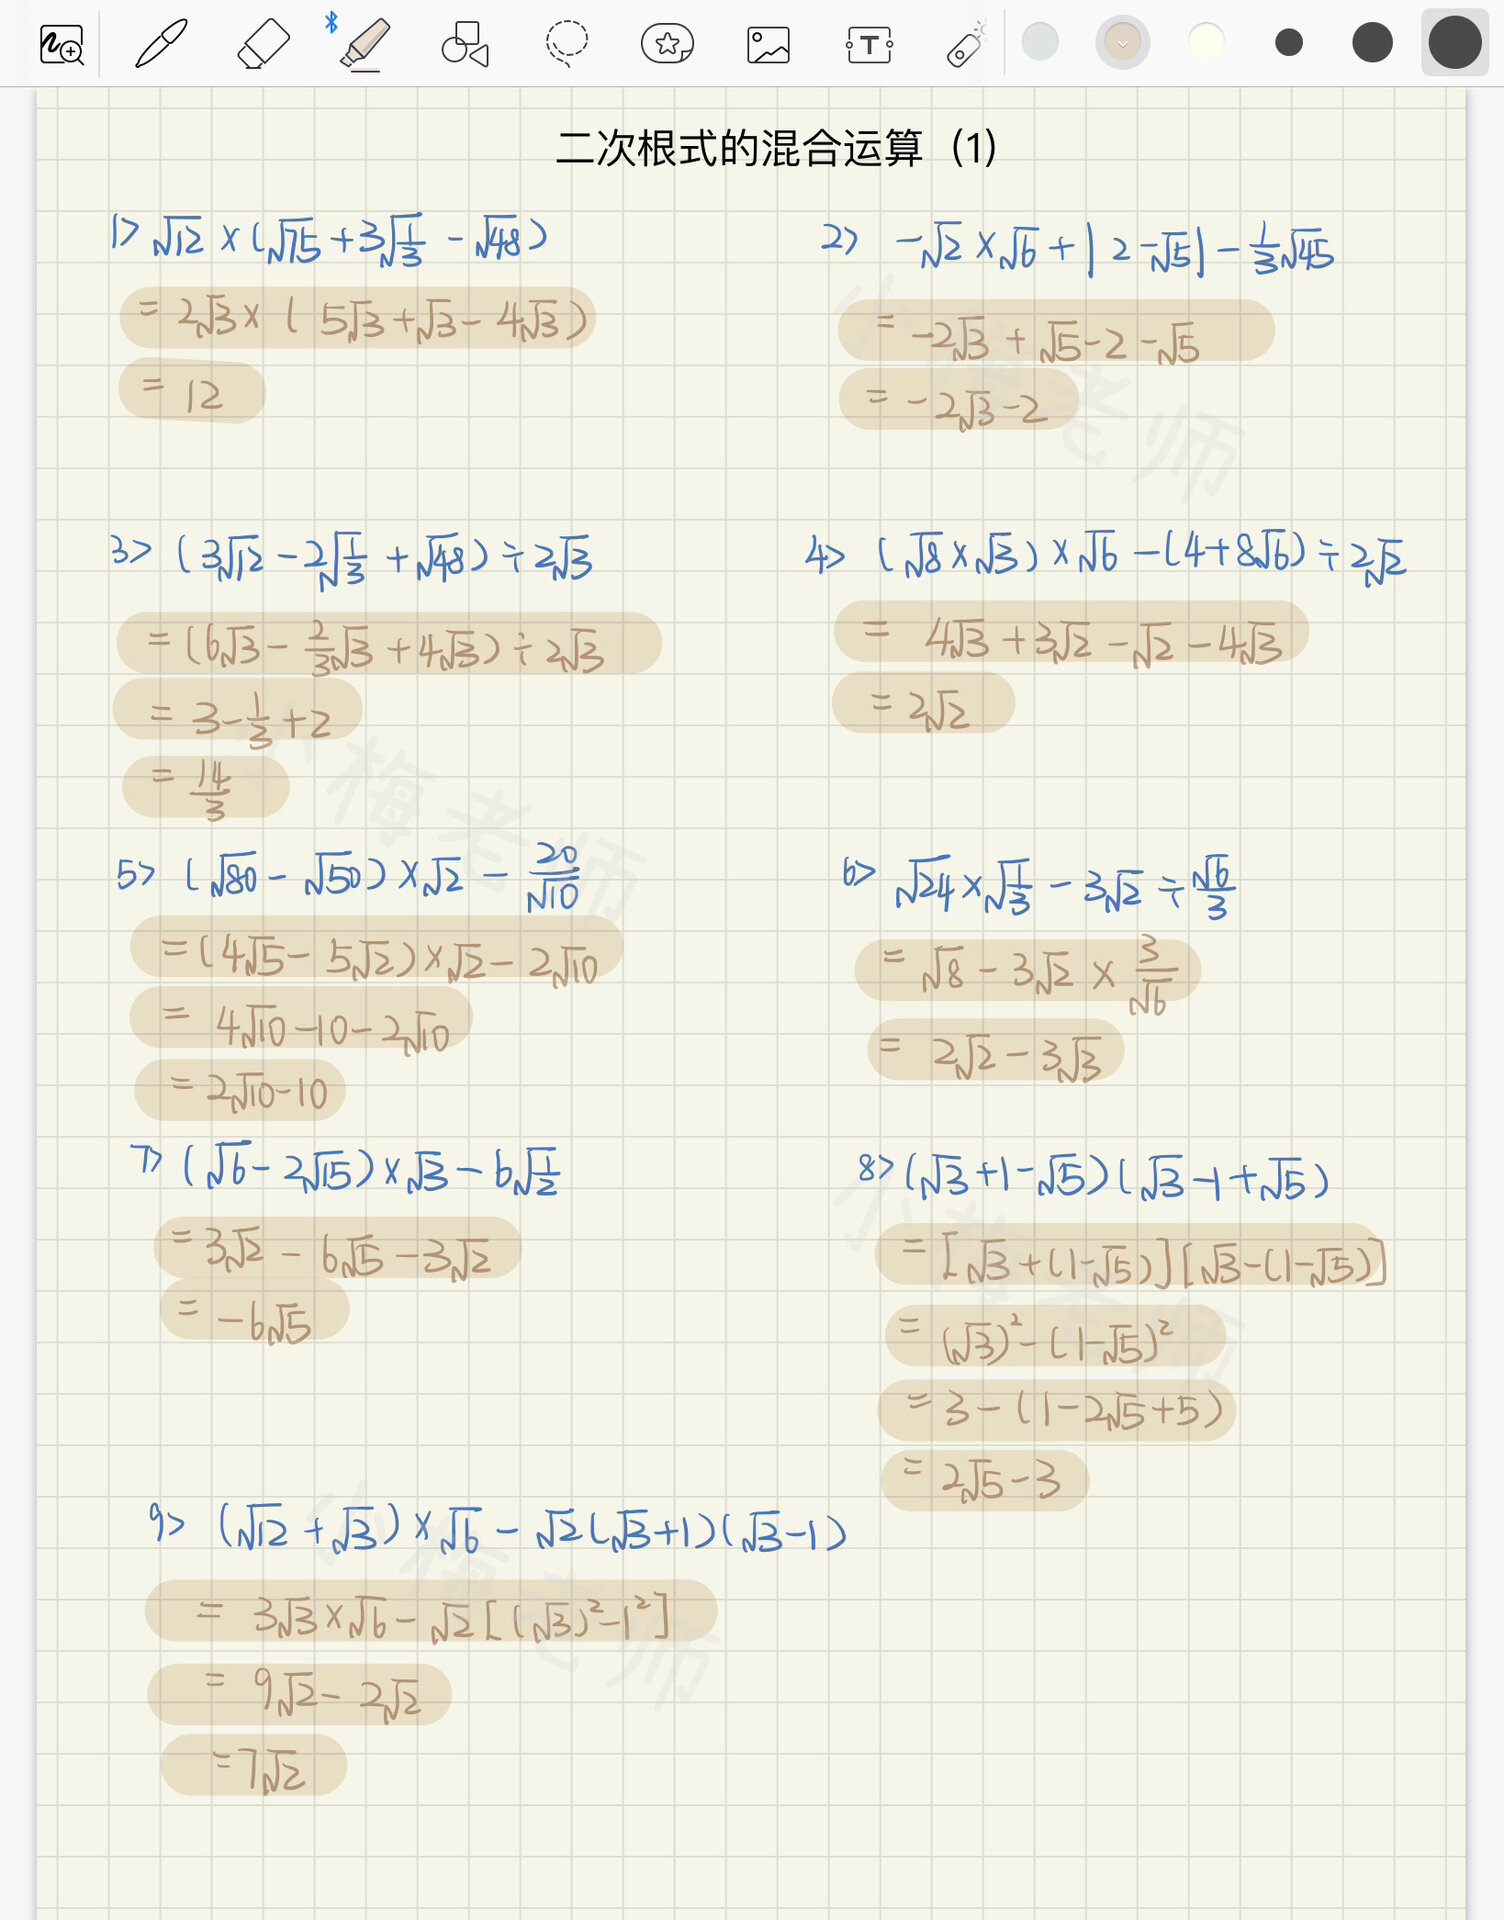 二次根式的混合运算 (1)
1> √12 × (√75 + 3√(1/3) - √48)
= 2√3 × ( 5√3 + √3 - 4√3 )
= 12
2> -√2 × √6 + | 2 - √5 | - 1/3 √45
= -2√3 + √5 - 2 - √5
= -2√3 - 2
3> ( 3√12 - 2√(1/3) + √48 ) ÷ 2√3
= (6√3 - 2/3 √3 + 4√3 ) ÷ 2√3
= 3 - 1/3 + 2
= 14/3
4> ( √8 × √3 ) × √6 - (4 + 8√6) ÷ 2√2
= 4√3 + 3√2 - √2 - 4√3
= 2√2
5> ( √80 - √50 ) × √2 - 20/√10
= (4√5 - 5√2 ) × √2 - 2√10
= 4√10 - 10 - 2√10
= 2√10 - 10
6> √24 × √(1/3) - 3√2 ÷ √6/3
= √8 - 3√2 × 3/√6
= 2√2 - 3√3
7> ( √6 - 2√15 ) × √3 - 6√(1/2)
= 3√2 - 6√5 - 3√2
= -6√5
8> (√3 + 1 - √5 ) ( √3 - 1 + √5 )
= [ √3 + (1-√5) ] [ √3 - (1-√5) ]
= (√3)² - (1-√5)²
= 3 - (1 - 2√5 + 5)
= 2√5 - 3
9> (√12 + √3 ) × √6 - √2 (√3 + 1) ( √3 - 1 )
= 3√3 × √6 - √2 [ (√3)² - 1² ]
= 9√2 - 2√2
= 7√2
小梅老师
小梅老师
小梅老师
小梅老师